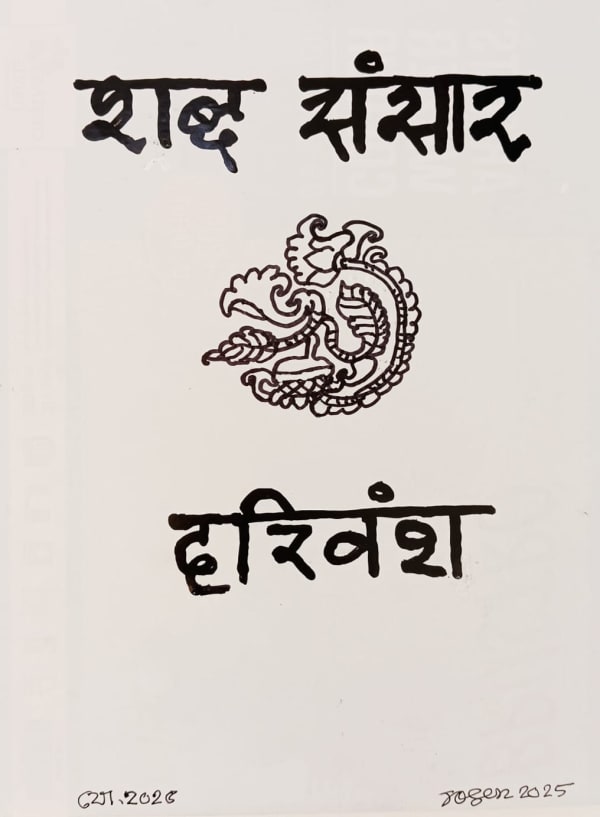 शब्द संसार
हरिवंश
যো.2025
Jogen 2025